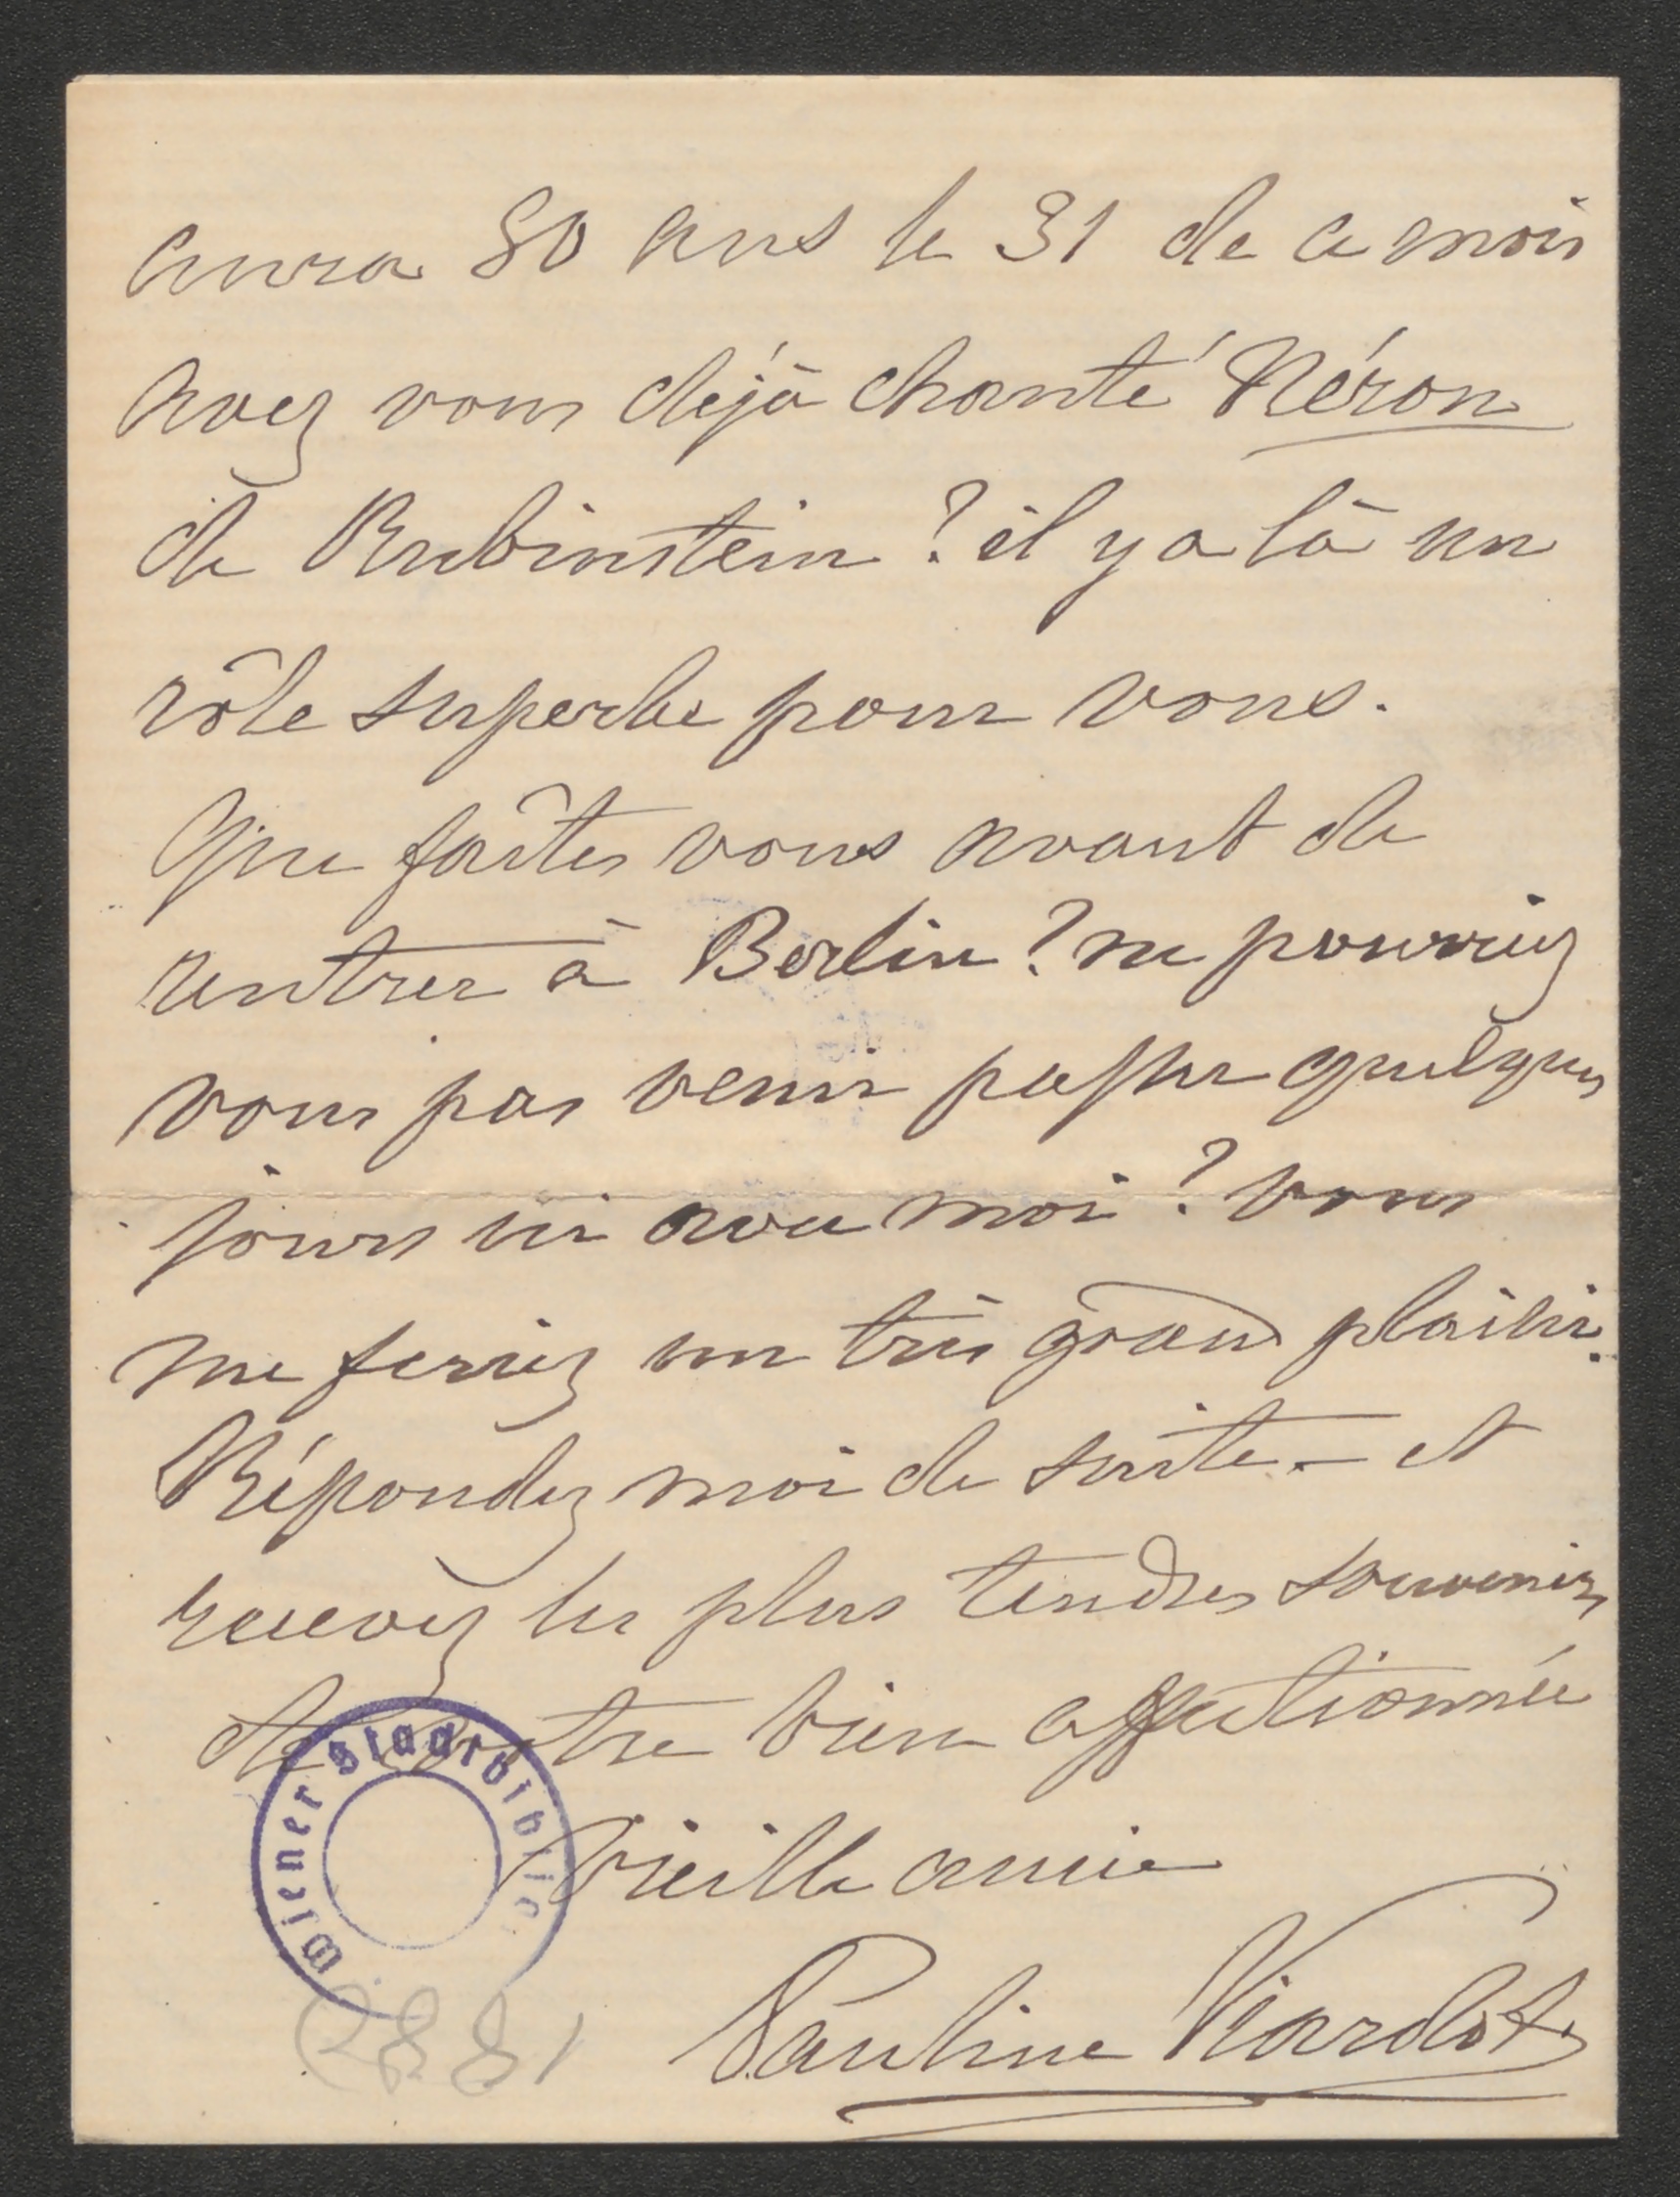 aura 80 ans le 31 de ce mois
avez vous déjà chanté Néron
de Rubinstein ? il y a là un
rôle superbe pour vous.
Que faites vous avant de
rentrer à Berlin ? ne pourriez
vous pas venir passer quelques
jours ici avec moi ? vous
me feriez un très grand plaisir.
Répondez moi de suite. — et
recevez les plus tendres souvenirs
de votre bien affectionnée
vieille amie
Pauline Viardot
Wiener Stadtbiblio